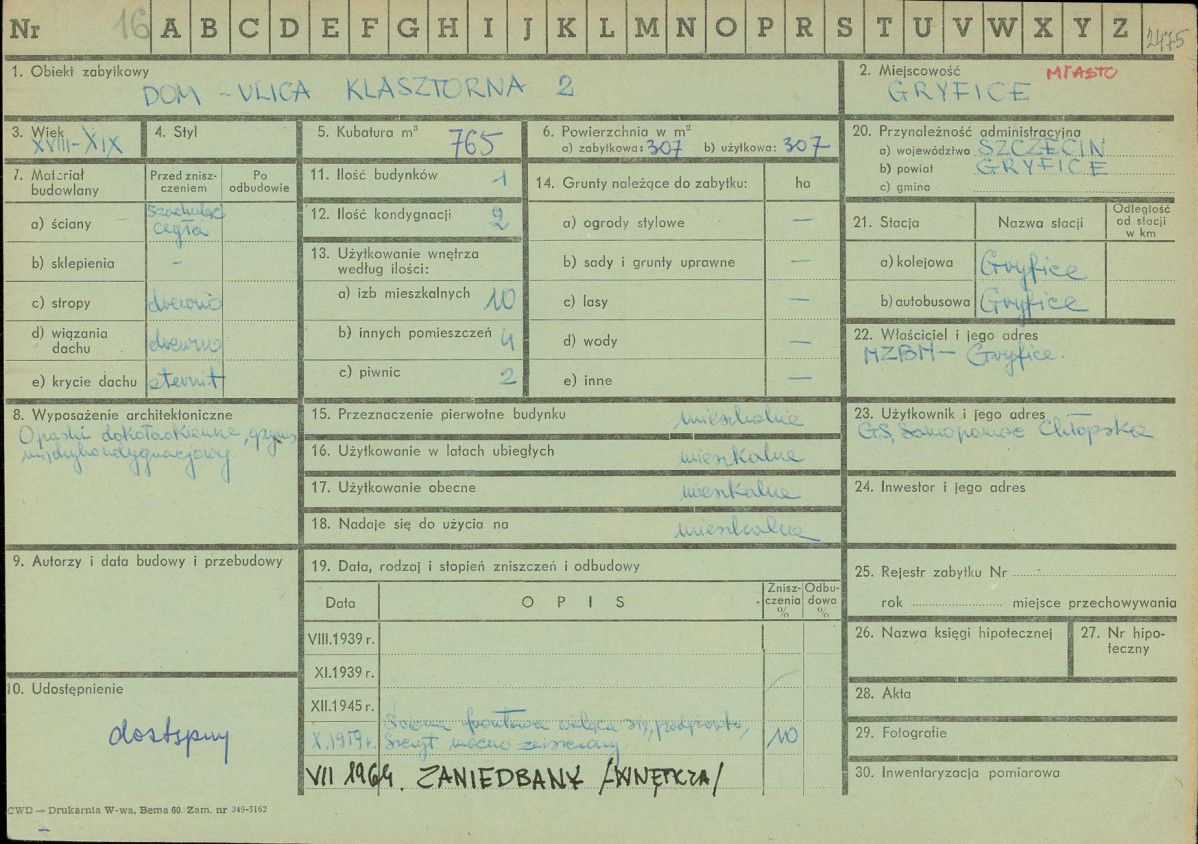 Nr 16 A B C D E F G H I J K L M N O P R S T U V W X Y Z 2475
1. Obiekt zabytkowy
DOM - ULICA KLASZTORNA 2
2. Miejscowość MIASTO
GRYFICE
3. Wiek
XVIII-XIX
4. Styl
5. Kubatura m³ 765
6. Powierzchnia w m²
a) zabytkowa: 307 b) użytkowa: 307
20. Przynależność administracyjna
a) województwo SZCZECIN
b) powiat GRYFICE
c) gmina
7. Materiał budowlany
Przed zniszczeniem
Po odbudowie
a) ściany
cegła
b) sklepienia -
c) stropy drewno
d) wiązania dachu drewno
e) krycie dachu eternit
11. Ilość budynków 1
12. Ilość kondygnacji 2
13. Użytkowanie wnętrza
według ilości:
a) izb mieszkalnych 10
b) innych pomieszczeń 4
c) piwnic 2
14. Grunty należące do zabytku: ha
a) ogrody stylowe —
b) sady i grunty uprawne —
c) lasy —
d) wody —
e) inne —
21. Stacja Nazwa stacji
Odległość
od stacji
w km
a) kolejowa Gryfice
b) autobusowa Gryfice
22. Właściciel i jego adres
MZBM - Gryfice.
8. Wyposażenie architektoniczne
Opaski dokołaokienne, gzyms
międzykondygnacjowy.
15. Przeznaczenie pierwotne budynku mieszkalne
16. Użytkowanie w latach ubiegłych mieszkalne
17. Użytkowanie obecne mieszkalne
18. Nadaje się do użycia na mieszkalne
23. Użytkownik i jego adres
GS, Samopomoc Chłopska
24. Inwestor i jego adres
9. Autorzy i data budowy i przebudowy
10. Udostępnienie
dostępny
19. Data, rodzaj i stopień zniszczeń i odbudowy
Data
O P I S
Zniszczenia %
Odbudowa %
VIII.1939 r.
XI.1939 r.
XII.1945 r.
Ściana frontowa waląca się, podparta,
X.1959 r. Szczyt mocno zniszczony. 10
VII 1964. ZANIEDBANY /WNĘTRZA/
25. Rejestr zabytku Nr
rok miejsce przechowywania
26. Nazwa księgi hipotecznej
27. Nr hipoteczny
28. Akta
29. Fotografie
30. Inwentaryzacja pomiarowa
CWD — Drukarnia W-wa, Bema 60. Zam. nr 349-5162